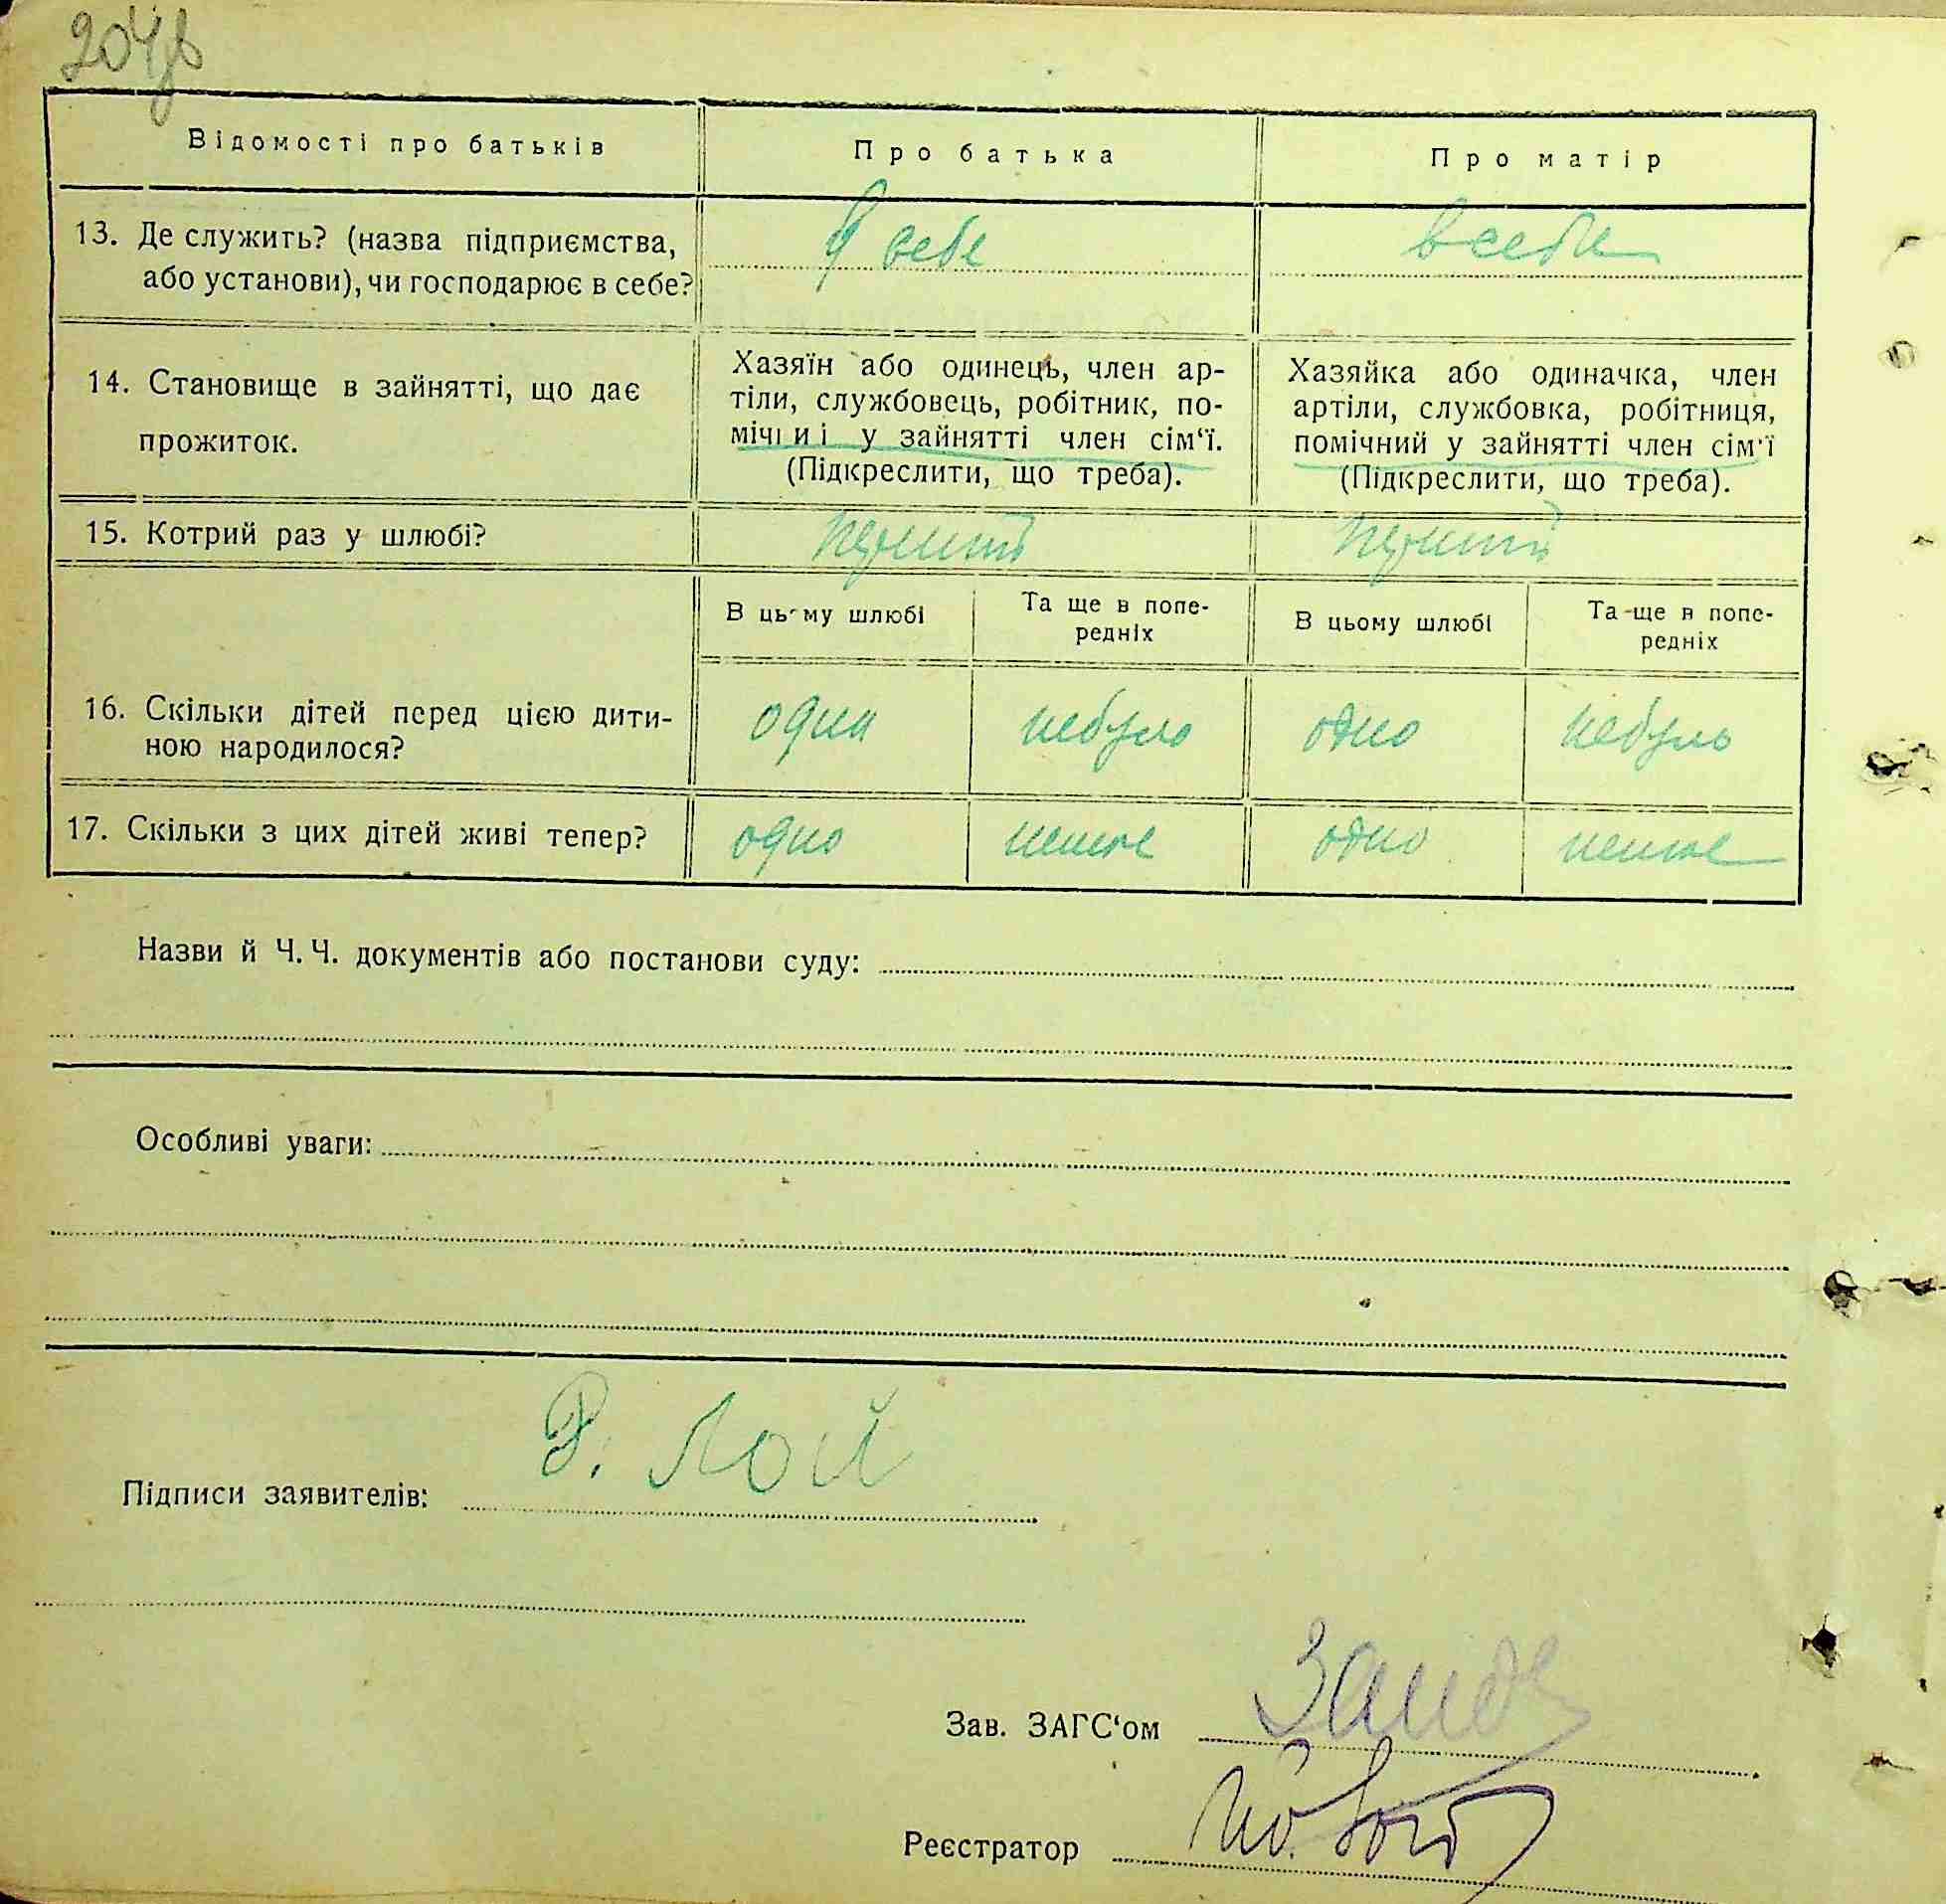 Відомості про батьків
Про батька
Про матір
13. Де служить? (назва підприємства,
або установи), чи господарює в себе?
У себе
в себе
14. Становище в зайнятті, що дає
прожиток.
Хазяїн або одинець, член ар-
тіли, службовець, робітник, по-
мічниі у зайнятті член сім‘ї.
(Підкреслити, що треба).
Хазяйка або одиначка, член
артіли, службовка, робітниця,
помічний у зайнятті член сім‘ї
(Підкреслити, що треба).
15. Котрий раз у шлюбі?
В цьому шлюбі
Та ще в попе-
редніх
В цьому шлюбі
Та ще в попе-
редніх
16. Скільки дітей перед цією дити-
ною народилося?
одна небуло одно небуль
17. Скільки з цих дітей живі тепер?
одно немає одно немає
Назви й Ч. Ч. документів або постанови суду:
Особливі уваги:
Р. Лой
Підписи заявителів:
Зав. ЗАГС‘ом
Реєстратор